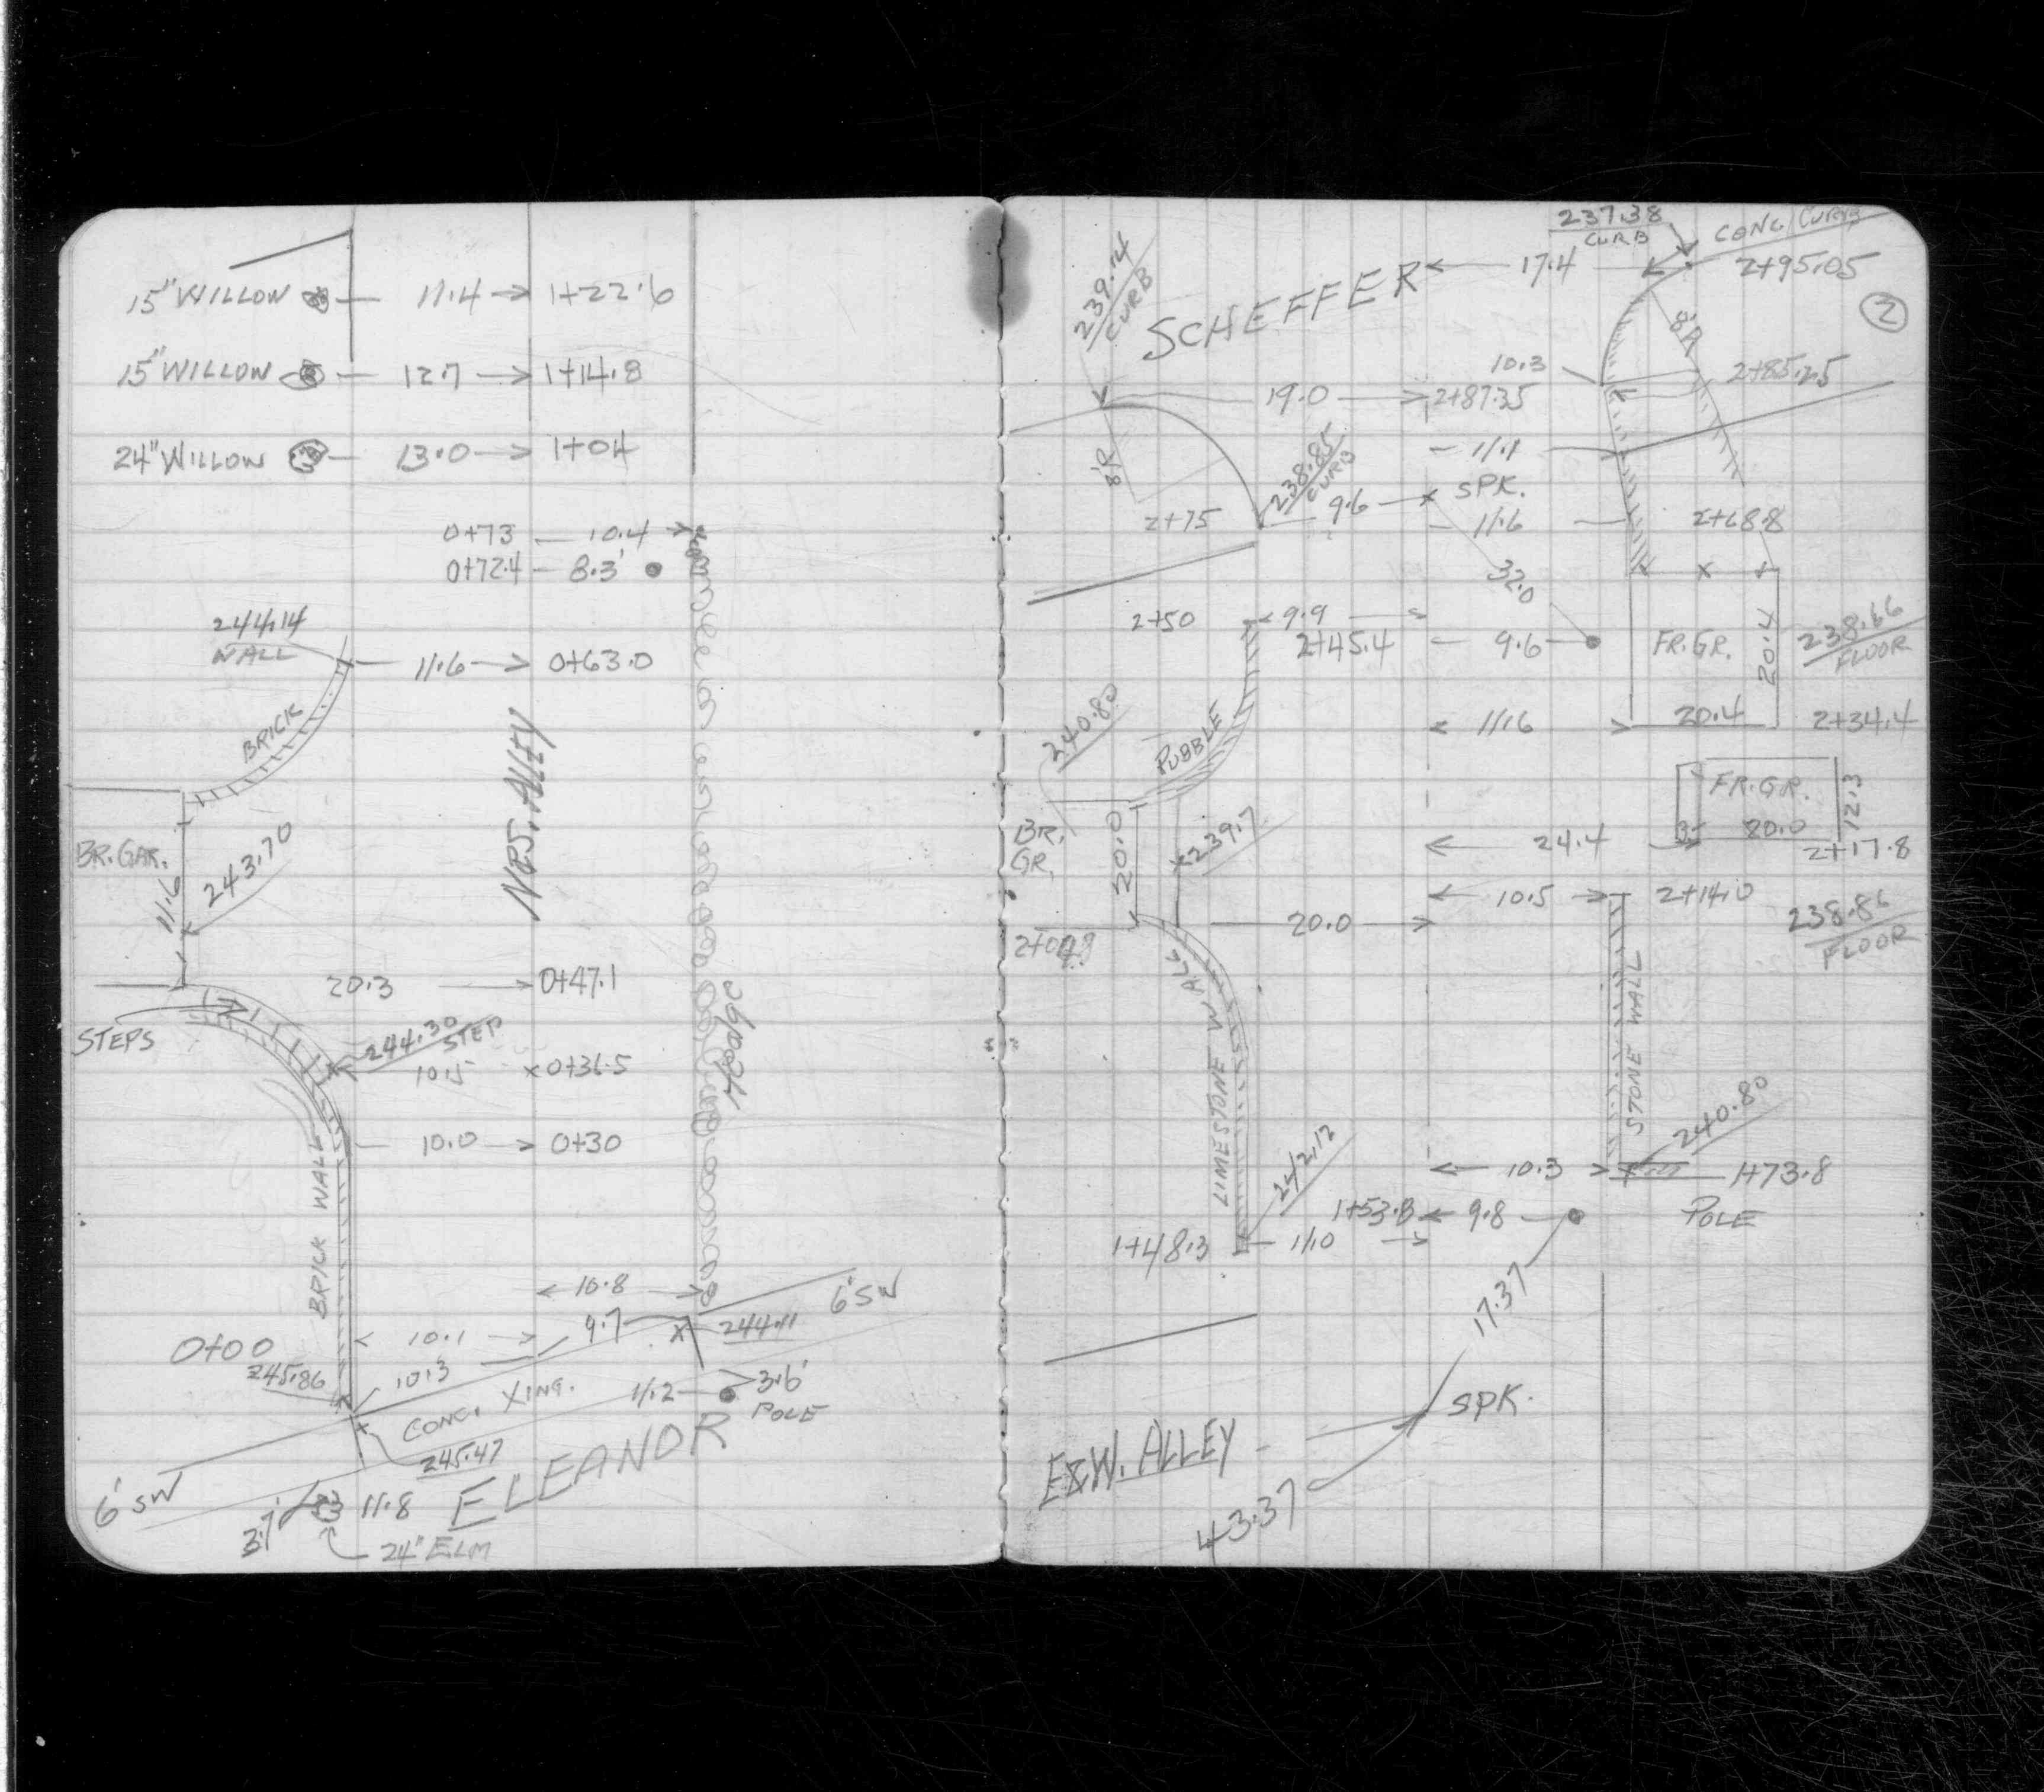 15" WILLOW — 11.4 → 1+22.6
15" WILLOW — 12.7 → 1+14.8
24" WILLOW — 13.0 → 1+04
0+73 — 10.4 →
0+72.4 — 8.3'
244.14
WALL
11.6 → 0+63.0
BRICK
N&S. ALLEY
BR. GAR.
11.6
243.70
20.3 → 0+47.1
STEPS
244.30
STEP
10.5 × 0+36.5
Hedge
10.0 → 0+30
BRICK WALL
← 10.8 →
6' SW
0+00
← 10.1 →
9.7
244.11
245.86
10.3
CONC. XING.
11.2
3.6'
POLE
245.47
ELEANOR
6' SW
3.7'
11.8
24" ELM
237.38
CURB
CONC CURB
239.14
CURB
SCHEFFER
← 17.4
2+95.05
2
8'R
10.3
2+85.25
19.0 → 2+87.35
11.1
8'R
238.85
CURB
SPK.
2+75
9.6 ×
11.6
2+68.8
32.0
2+50
← 9.9 →
2+45.4 — 9.6
FR. GR.
20.4
238.66
FLOOR
240.80
RUBBLE
← 11.6 →
20.4
2+34.4
FR. GR.
20.0
12.3
BR.
GR.
20.0
× 239.7
← 24.4 →
2+17.8
← 10.5 →
2+14.0
20.0 →
238.86
FLOOR
LIMESTONE WALL
STONE WALL
242.12
240.80
← 10.3 →
1+73.8
1+53.8 ← 9.8
POLE
1+48.3 — 11.0 →
17.37
SPK.
E&W. ALLEY
43.37